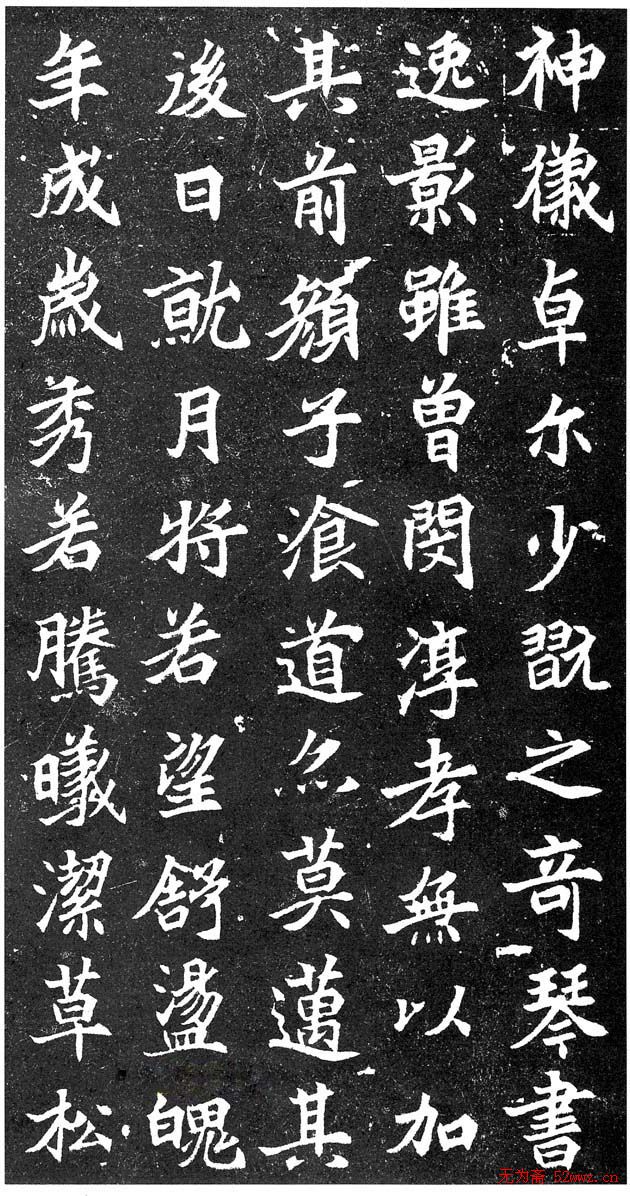 神儀卓尔少翫之奇琴書
逸影雖曾閔淳孝無以加
其前顏子飡道亦莫邁其
後日就月將若望舒盪魄
年成歲秀若騰曦潔草松
无为斋·52wwz.cn